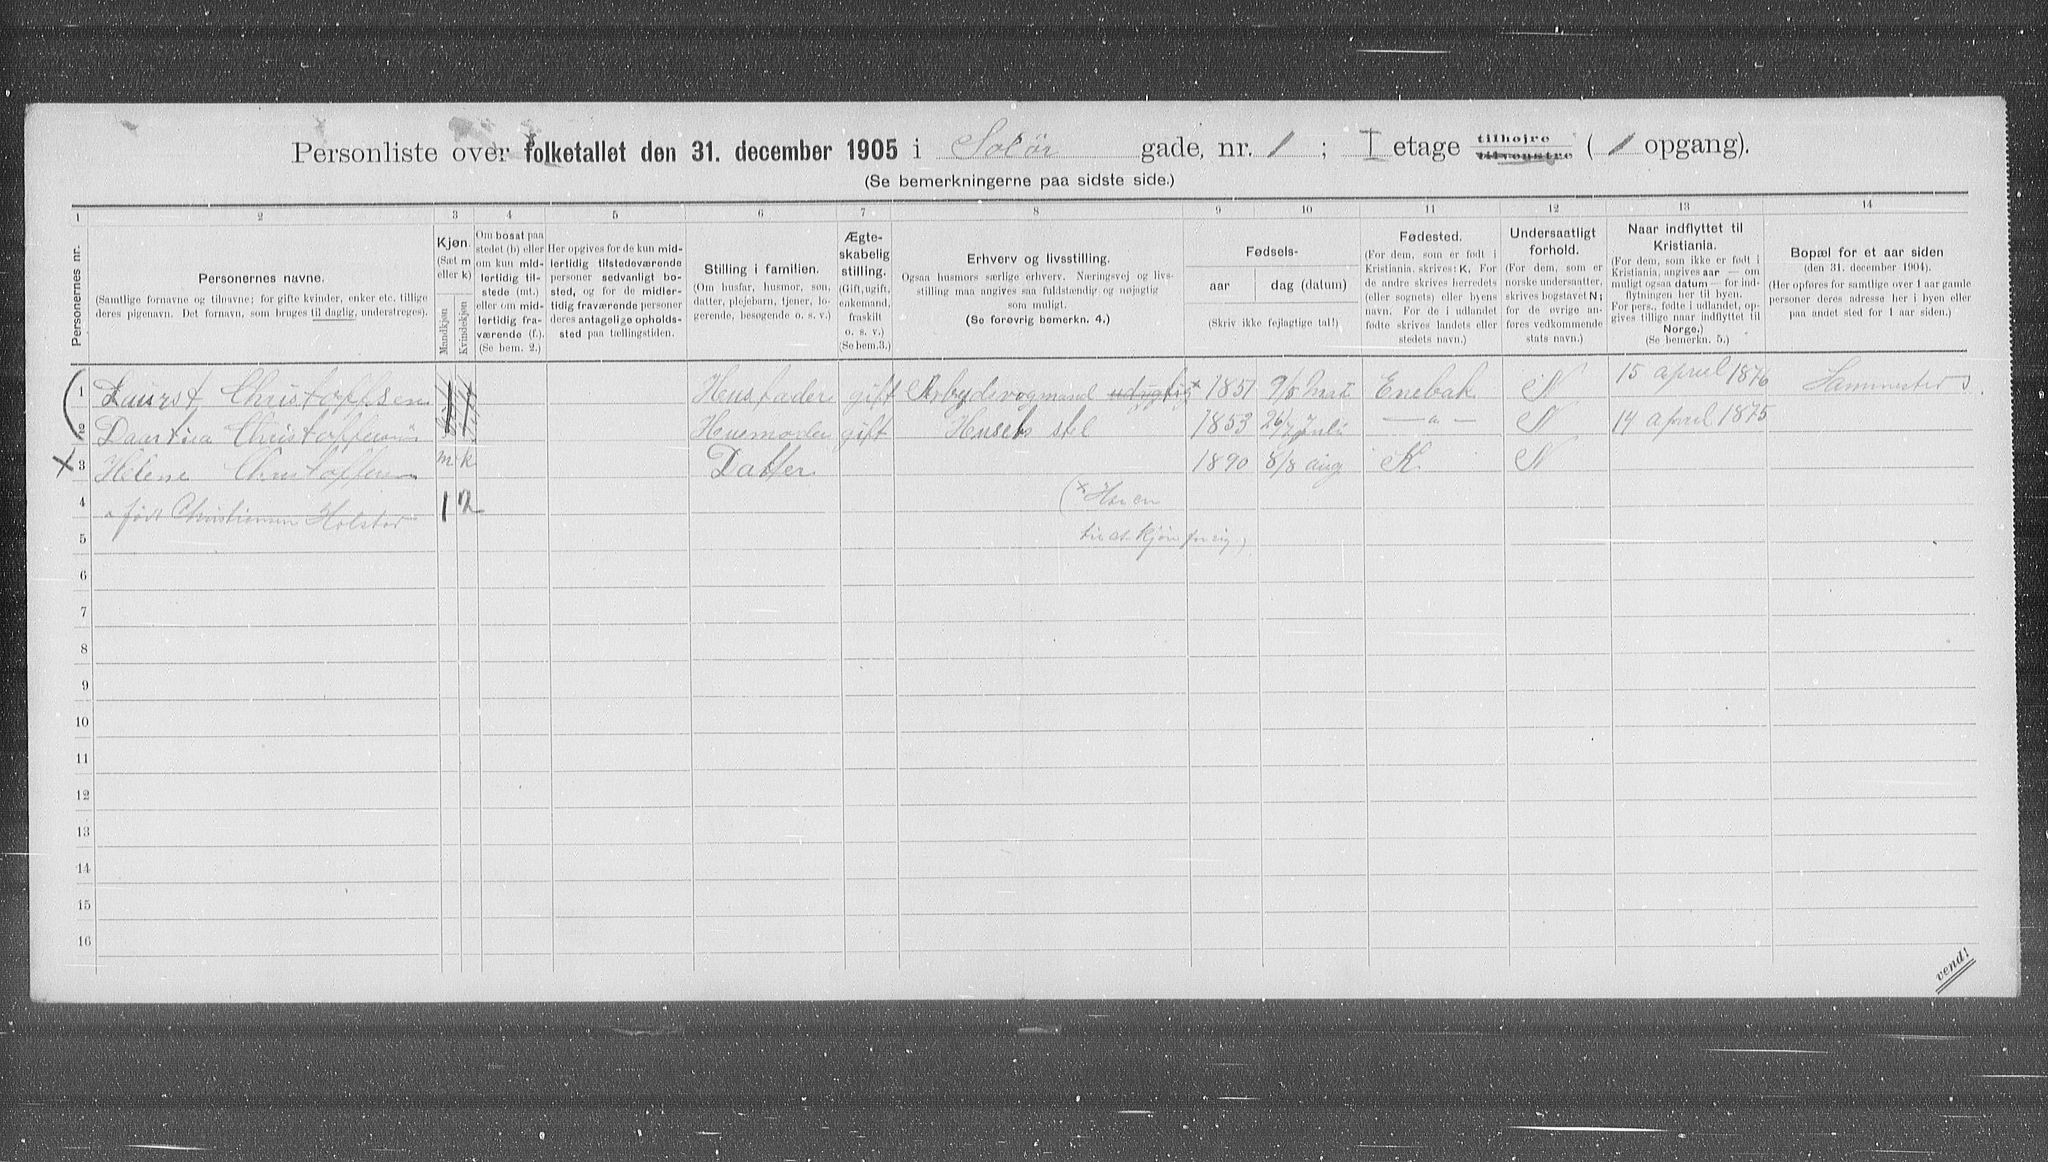 Personliste over folketallet den 31. december 1905 i Solör gade, nr. 1 ; I etage tilhøjre tilvenstre ( 1 opgang).
(Se bemerkningerne paa sidste side.)
1 2 3 4 5 6 7 8 9 10 11 12 13 14
Personernes nr.
Personernes navne.
(Samtlige fornavne og tilnavne; for gifte kvinder, enker etc. tillige deres pigenavn. Det fornavn, som bruges til daglig, understreges).
Kjøn.
(Sæt m eller k)
Mandkjøn
Kvindekjøn
Om bosat paa stedet (b) eller om kun midlertidig tilstede (mt.) eller om midlertidig fraværende (f.).
(Se bem. 2.)
Her opgives for de kun midlertidig tilstedeværende personer sedvanligt bosted, og for de midlertidig fraværende personer deres antagelige opholdssted paa tællingstiden.
Stilling i familien.
(Om husfar, husmor, søn, datter, plejebarn, tjener, logerende, besøgende o. s. v.)
Ægteskabelig stilling.
(Gift, ugift, enkemand, fraskilt o. s. v.)
(Se bem. 3.)
Erhverv og livsstilling.
Ogsaa husmors særlige erhverv. Næringsvej og livsstilling maa angives saa fuldstændig og nøjagtig som muligt.
(Se forøvrig bemerkn. 4.)
Fødsels-
aar dag (datum)
(Skriv ikke fejlagtige tal!)
Fødested.
(For dem, som er født i Kristiania, skrives: K. For de andre skrives herredets (eller sognets) eller byens navn. For de i udlandet fødte skrives landets eller stedets navn.)
Undersaatligt forhold.
(For dem, som er norske undersaatter, skrives bogstavet N; for de øvrige anføres vedkommende stats navn.)
Naar indflyttet til Kristiania.
(For dem, som ikke er født i Kristiania, angives aar — om muligt ogsaa datum — for indflytningen her til byen. For pers., fødte i udlandet, opgives tillige naar indflyttet til Norge.)
(Se bemerkn. 5.)
Bopæl for et aar siden
(den 31. december 1904).
(Her opføres for samtlige over 1 aar gamle personer deres adresse her i byen eller paa andet sted for 1 aar siden.)
1 Laurst Christoffsen Husfader gift Arbydsvogmand 1851 9/5 Mai Enebak N 15 april 1876 Sammesteds
2 Christoffersen Husmoder gift Husets stel 1853 26/7 Juli — " — N 14 april 1875
3 Helene Christoffersen m k Datter 1890 8/8 aug K N
4 født Christiansen Holster 1 2 (x Har en
5 kjøre for sig.)
6
7
8
9
10
11
12
13
14
15
16
vend!